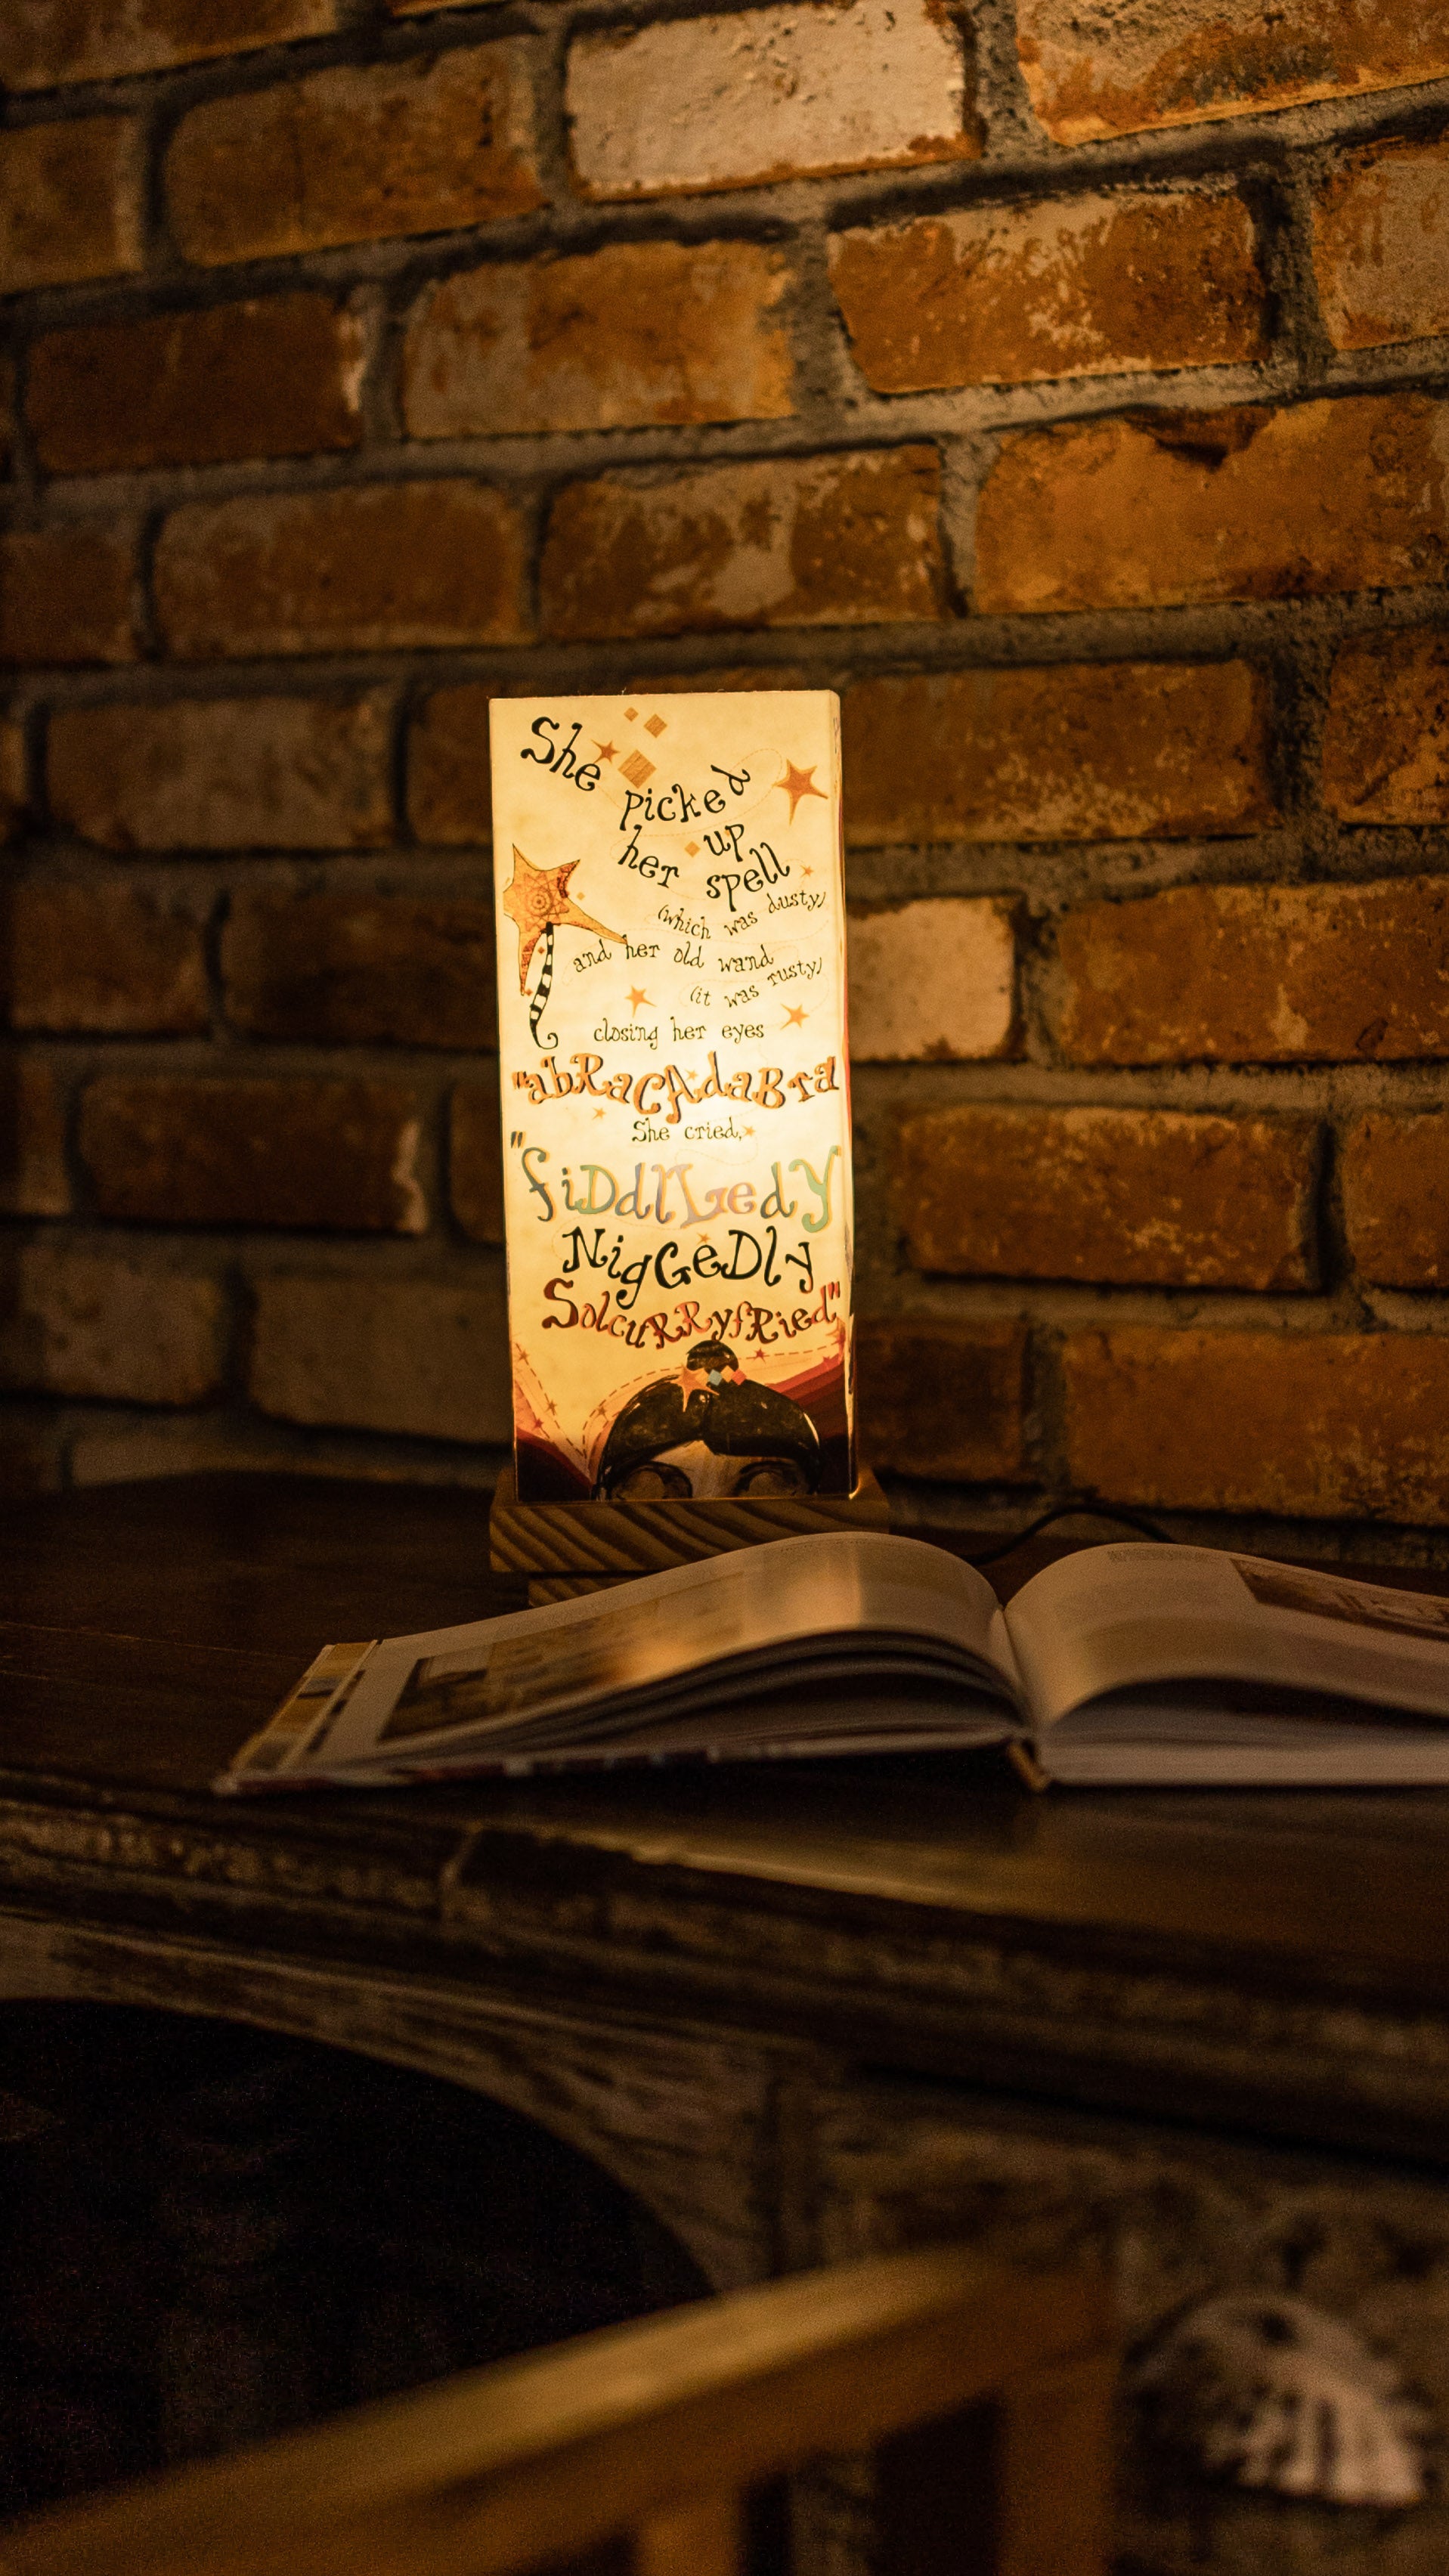 She
picked
up
her spell
(which was dusty)
and her old wand
(it was rusty)
closing her eyes
"abRaCAdaBra
She cried,
"fiDdlLedy
NigGeDly
SolcuRRyfRied"